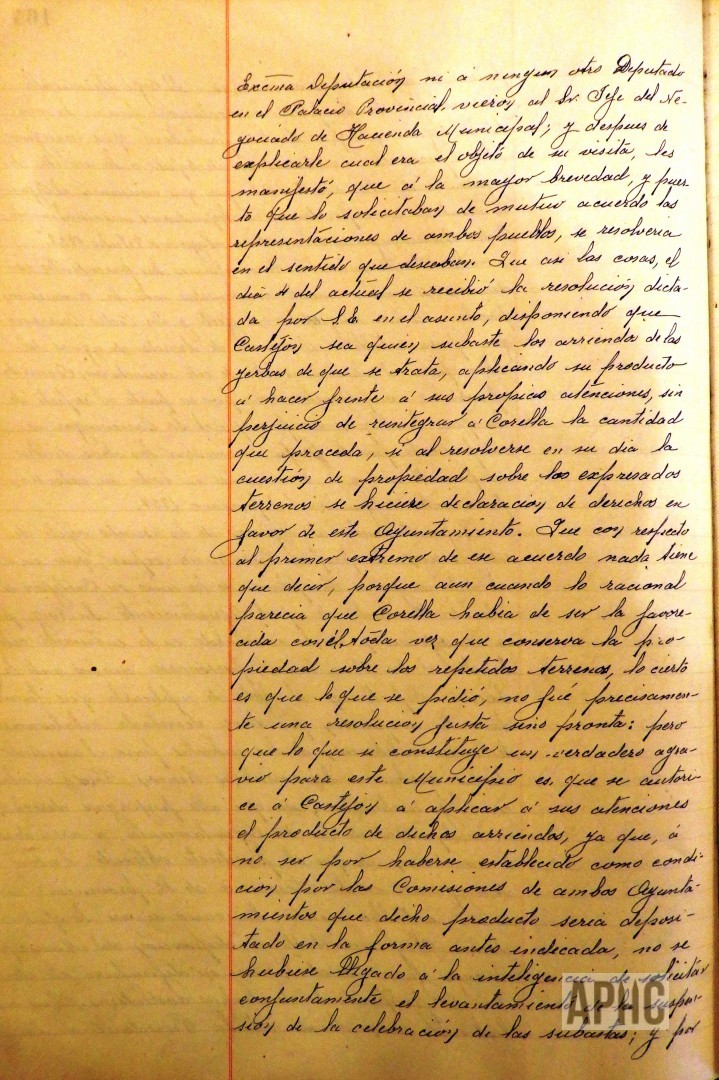 Excma Deputación ni á ningun otro Deputado
en el Palacio Provincial, vieron al Sr. Jefe del Ne-
gociado de Hacienda Municipal; y despues de
explicarle cual era el objeto de su visita, les
manifestó, que á la mayor brevedad, y pues-
to que lo solicitaban de mutuo acuerdo las
representaciones de ambos pueblos, se resolveria
en el sentido que deseaban. Que asi las cosas, el
dia 4 del actual se recibió la resolución dicta-
da por S.E. en el asunto, disponiendo que
Castejon sea quien subaste los arriendos de las
yerbas de que se trata, aplicando su producto
á hacer frente á sus propias atenciones, sin
perjuicio de reintegrar á Corella la cantidad
que proceda, si al resolverse en su dia la
cuestión de propiedad sobre los expresados
terrenos se hiciere declaracion de derechos en
favor de este Ayuntamiento. Que con respecto
al primer extremo de ese acuerdo nada tiene
que decir, porque aun cuando lo racional
parecia que Corella habia de ser la favore-
cida con él toda vez que conserva la pro-
piedad sobre los repetidos terrenos, lo cierto
es que lo que se pidió, no fué precisamen-
te una resolucion justa sino pronta: pero
que lo que si constituye un verdadero agra-
vio para este Municipio es, que se autori-
ce á Castejon á aplicar á sus atenciones
el producto de dichos arriendos, ya que, á
no ser por haberse establecido como condi-
cion por las Comisiones de ambos Ayunta-
mientos que dicho producto seria deposi-
tado en la forma antes indicada, no se
hubiese llegado á la inteligencia de solicitar
conjuntamente el levantamiento de la suspen-
sión de la celebración de las subastas; y por
APHC